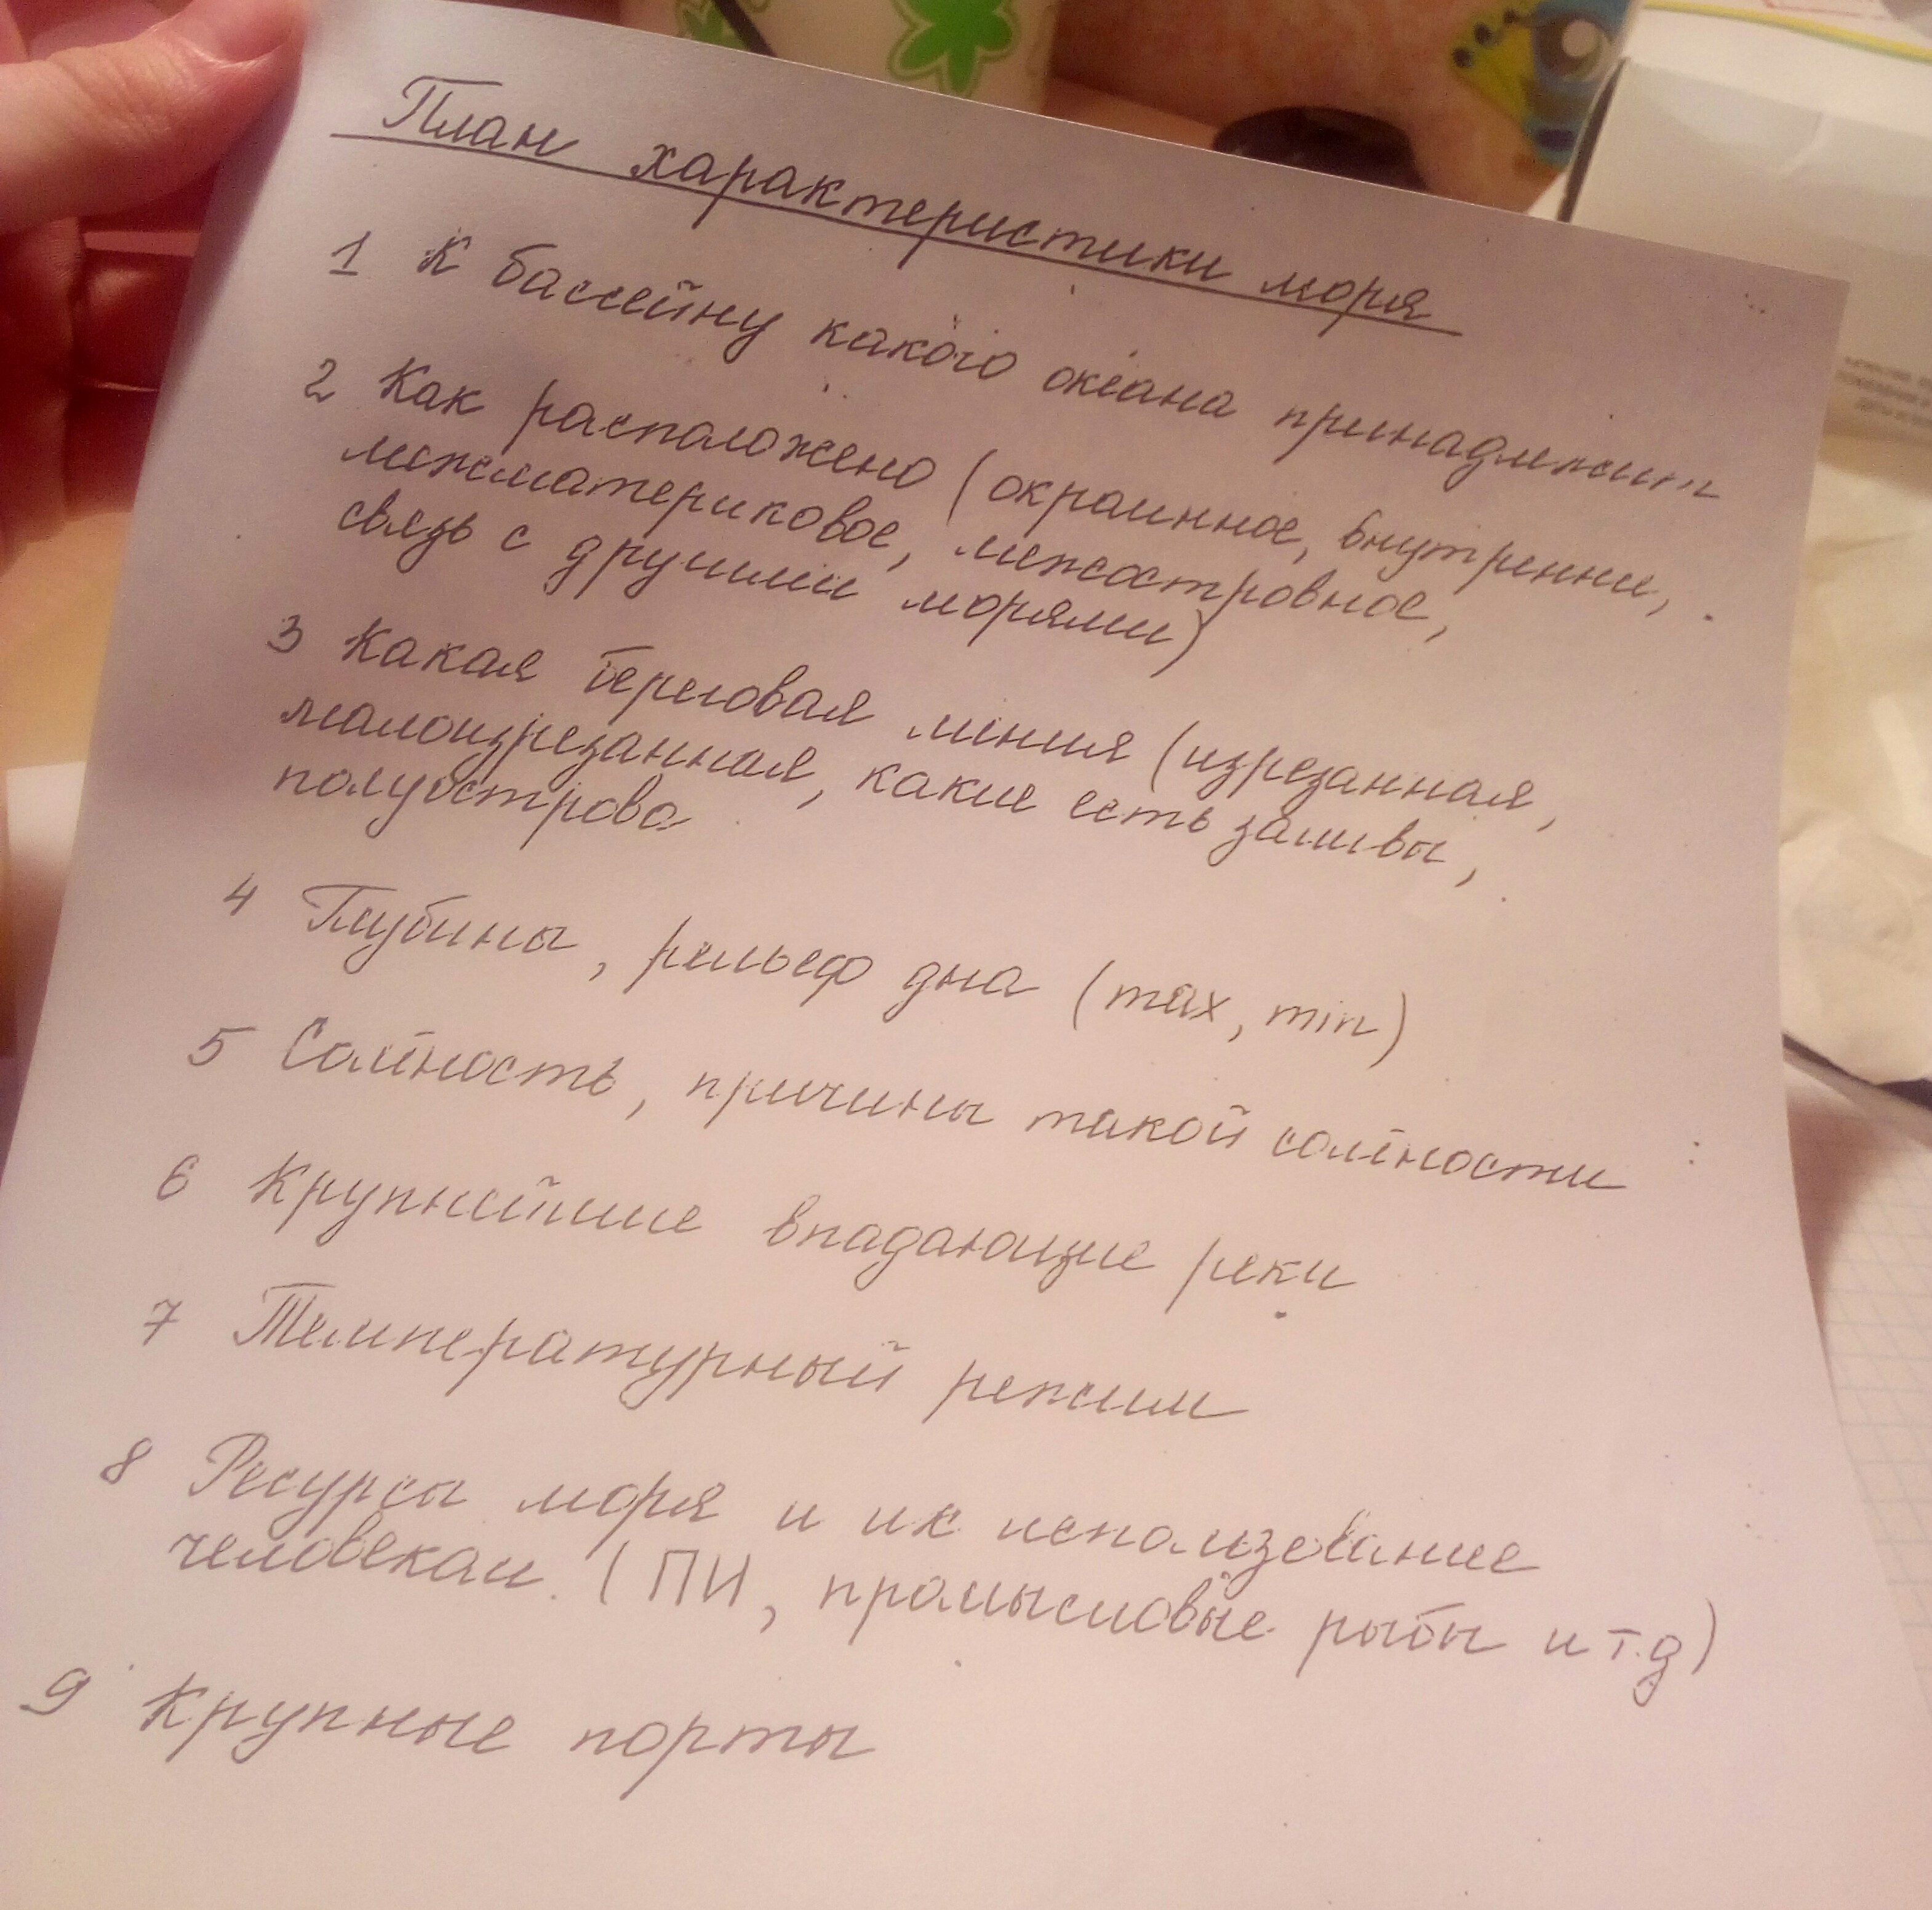 План характеристики моря
1 К бассейну какого океана принадлежит
2 Как расположено (окраинное, внутренние,
межматериковое, межостровное,
связь с другими морями)
3 Какая береговая линия (изрезанная,
малоизрезанная, какие есть заливы,
полуострова
4 Глубины, рельеф дна (max, min)
5 Солёность, причины такой солёности
6 Крупнейшие впадающие реки
7 Температурный режим
8 Ресурсы моря и их использование
человеком. (ПИ, промысловые рыбы и т.д)
9 Крупные порты